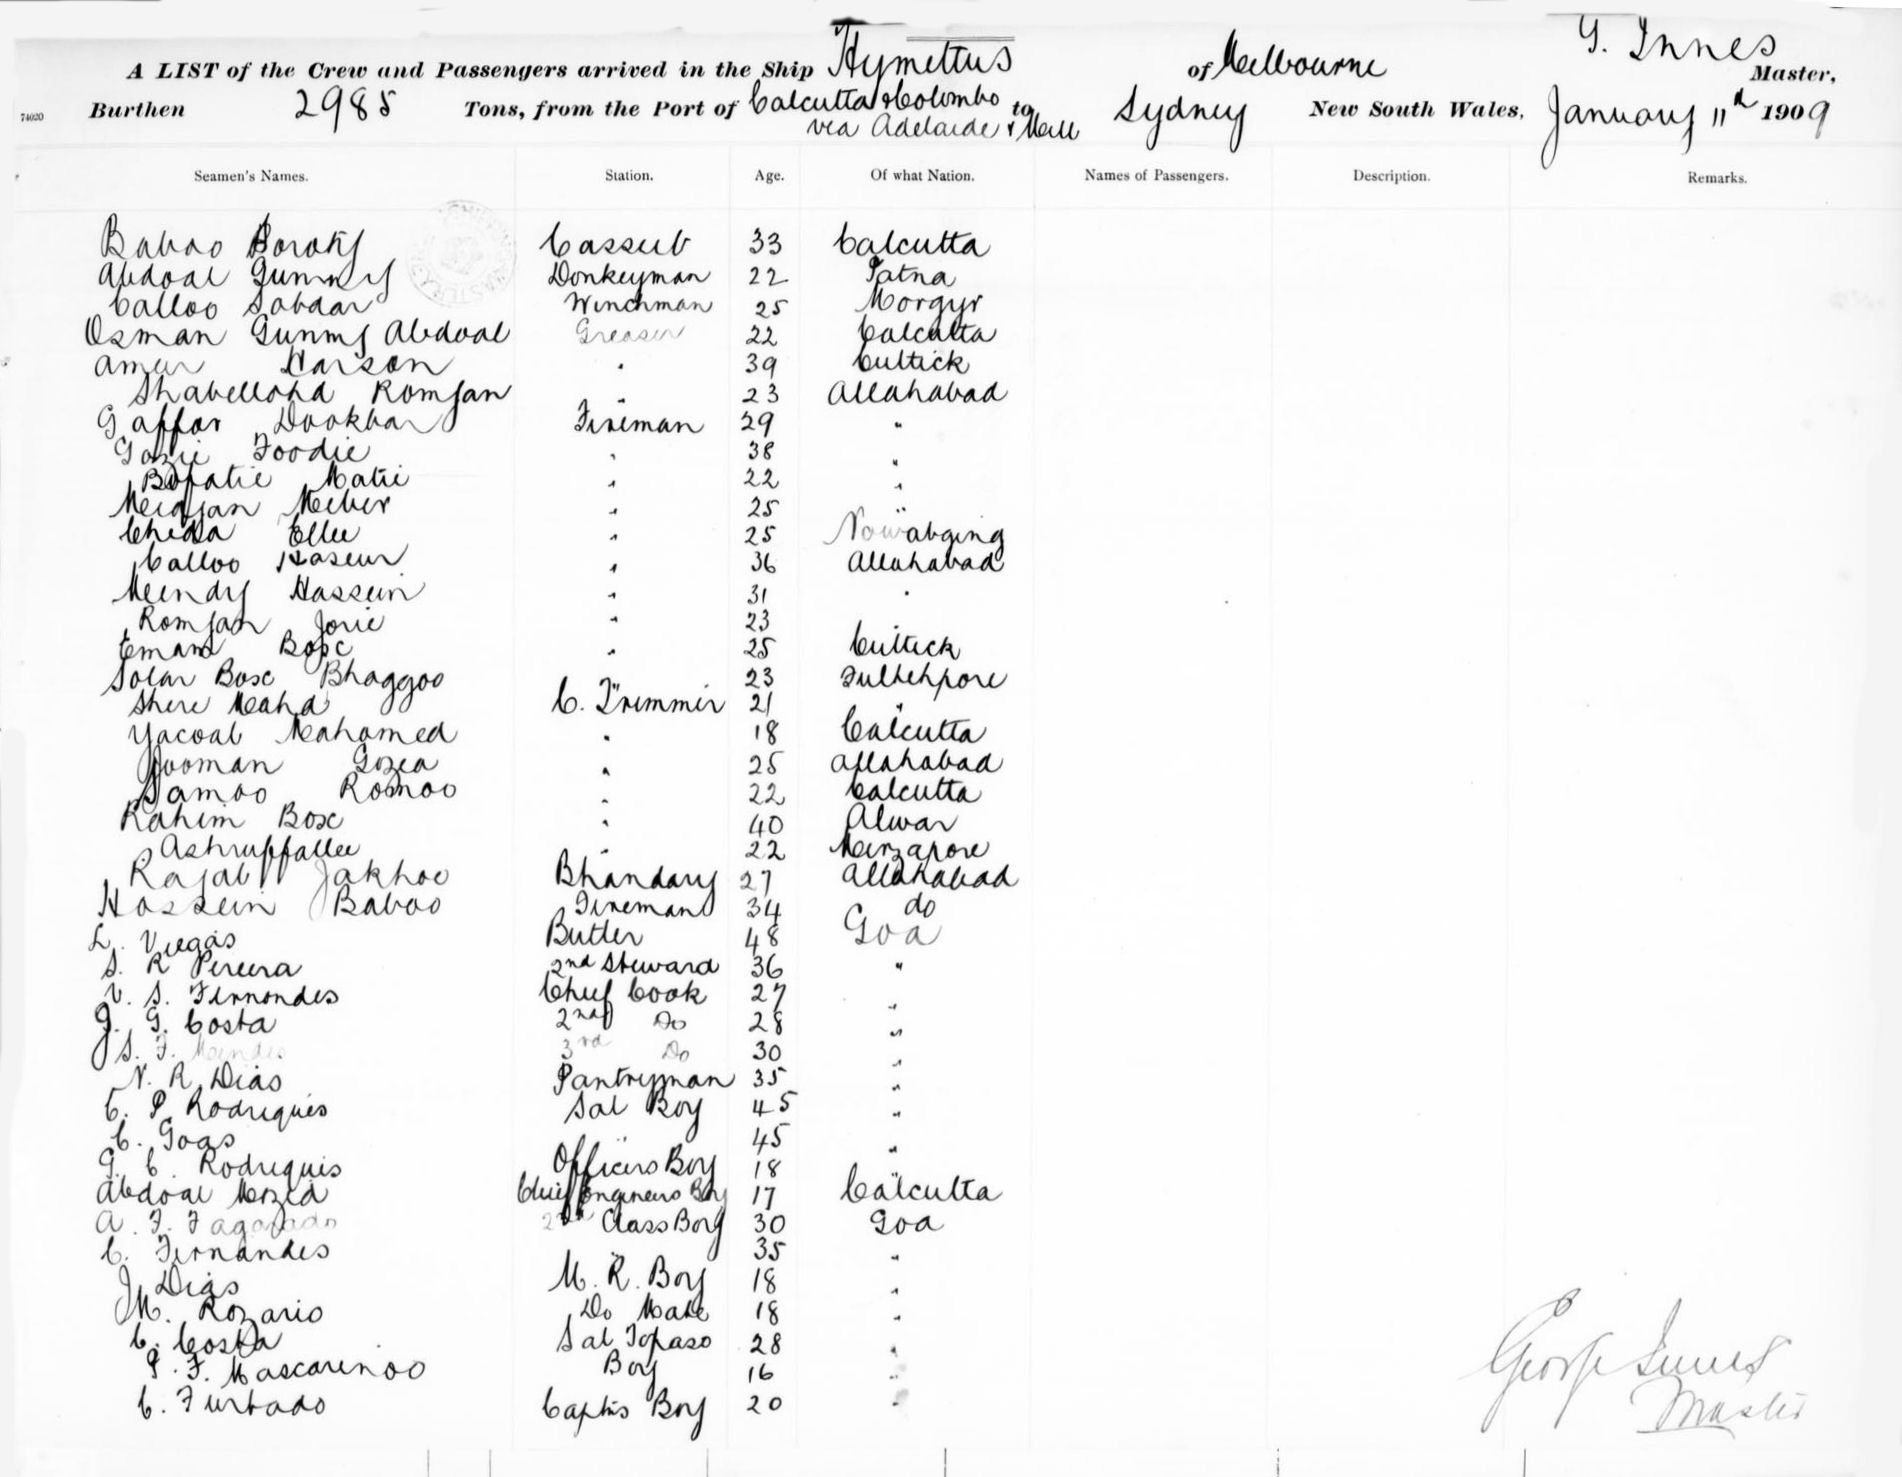 G. Innes
A LIST of the Crew and Passengers arrived in the Ship Hymettus of Melbourne Master,
74020 Burthen 2985 Tons, from the Port of Calcutta & Colombo to Sydney New South Wales, January 11th 1909
via Adelaide & Melb
Seamen's Names. Station. Age. Of what Nation. Names of Passengers. Description. Remarks.
Baboo Cassub 33 Calcutta
Abdoal Gunny Donkeyman 22 Patna
Calloo Sobdar Winchman 25 Morgyr
Osman Gunny Abdoal Greaser 22 Calcutta
Amur Harson " 39 Cuttick
Shabellohd Romjan " 23 Allahabad
Gaffor Dookhan Fireman 29 "
Gozie Foodie " 38 "
Bopatie Matie " 22 "
Meidjan Meber " 25 "
Cheda Ellee " 25 Nowabging
Calloo Haseur " 36 Allahabad
Mendy Hassein " 31 "
Romjan Jorie " 23 "
Emam Bosc " 25 Cuttick
Solar Bose Bhaggoo " 23 Sultehpore
Shere Mahd C. Trimmir 21 "
Yacoab Mahomed " 18 Calcutta
Jooman Gozea " 25 Allahabad
Samoo Romoo " 22 Calcutta
Rahim Box " 40 Alwar
Ashruffallee " 22 Merzapore
Rajab Jakhoo Bhandary 27 Allahabad
Hossein Baboo Fireman 34 do
L. Viegas Butler 48 Goa
S. R Pereira 2nd Steward 36 "
V. S. Fernondes Chief Cook 27 "
J. G. Costa 2nd Do 28 "
S. F. Mendes 3rd Do 30 "
N. R. Dias Pantryman 35 "
C. P. Rodriques Sal Boy 45 "
C. Goas " 45 "
G. C. Rodriquis Officers Boy 18 "
Abdoal Mozid Chief Engineers Boy 17 Calcutta
A. F. Fagarado 2nd Class Boy 30 Goa
C. Fernandes " 35 "
J. Dias M. R. Boy 18 "
M. Rozario Do Mate 18 "
C. Costa Sal Topaso 28 "
P. F. Mascarinoo Boy 16 "
C. Furtado Capt's Boy 20 "
George Innes
Master